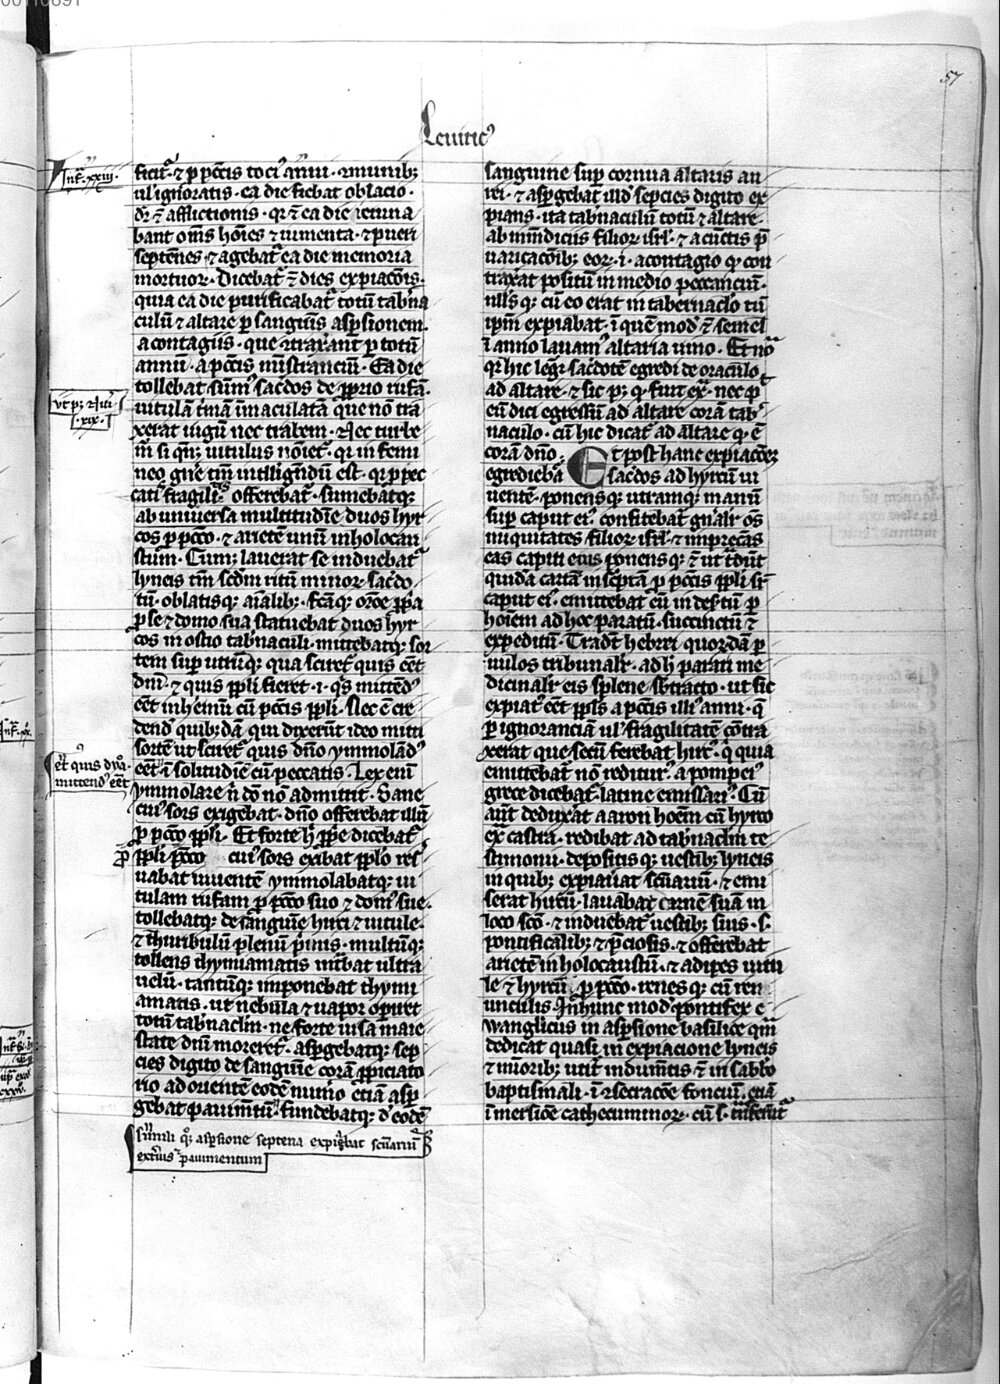 57
Leuitic᷒
Inf. xxiii.
ficit᷑. ⁊ p pctis toci᷒ anni. ⁊ munib;
ul ignoratis. ea die fiebat oblacio.
dr̄ ē afflictionis. qr ī ea die ieiuna
bant om̄s hoīes ⁊ iumenta. ⁊ pueri
septēnes. ⁊ agebat᷑ ea die memoria
mortuoꝝ. Dicebat᷑ ē dies expiacōis.
quia ea die purificabat᷑ totū tab̄na
culū ⁊ altare p sanguīs asp̄sionem.
a contagiis. que ꝯtraxāt p totū
annū. a pctīs mīstranciū. Ea die
tollebat sūm̄ sac̄dos de ꝓprio rufā.
uitulā t̄mā īmaculatā que nō tra
xerat iugū nec trabem. Nec turbe
m̄ si qn̄; uitulus nōīet᷑. qr in femi
neo gn̄e tm̄ intelligēdū est. qr p pec
cati᷒ fragilitas offerebat᷑. sumebatq;
ab uniuersa multitudīe duos hyr
cos p pctō. ⁊ arietē unū in holocau
stum. Cum; lauerat se induebat᷑
lyneis tm̄ scd̄m ritū minoꝝ sac̄do
tū. oblatisq; aīalib;. fc̄aq; orōe ꝓp̄a
p se ⁊ domo sua statuebat duos hyr
cos in ostio tab̄naculi. mittebatq; sor
tem sup utrūq; qua sciret᷑ quis eēt
dn̄i. ⁊ quis pp̄li fieret. i. q̄s mittēd᷒
eēt in h̄emū cū pctīs pp̄li. Nec ē cre
dend᷒ quib;dā qui dixerūt ideo mitti
sortē ut sciret᷑ quis dn̄o ymmolād᷒
eēt. ī solitudīe cū peccatis. Lex enī
ymmolare n̄ dō nō admittit. Sane
cui᷒ sors exigebat. dn̄o offerebat illū
p pctō pp̄li. Et forte h̄ ꝓp̄e dicebat᷑
p pp̄li pctō cui᷒ sors exibat pp̄lo res᷑
uabat uiuentē ymmolabatq; ui
tulam rufam p pctō suo ⁊ dom᷒ sue.
tollebatq; de sanguīe hirci ⁊ uitule.
⁊ thuribulū plenū p̄unis. multūq;
tollens thymiamatis int̄bat ultra
uelū. tantūq; imponebat thymi
amatis. ut nebula ⁊ uapor opiret
totū tab̄naclm̄. ne forte uisa maie
state dn̄i moreret᷑. asp̄gebatq; sep
cies digito de sanguīe corā ꝓpiciato
rio ad orientē eodē nutio etiā asp̄
gebat pauim̄tū. fundebatq; d eodē
ut p; Nūi
.xix.
et quis dn̄o.
mittend᷒ eēt
Simili q; asp̄sione septena expiebat sc̄uariū
exteri᷒ pauimentum
sanguine sup cornua altaris au
rei. ⁊ asp̄gebat᷑ illd᷒ sepcies digito ex
pians. ita tab̄naculū totū ⁊ altare.
ab mūdiciis filioꝝ isrl. ⁊ a cūctis p̄
uaricacōib; eoꝝ. i. a contagio q᷒ con
traxat positū in medio peccanciū.
ullīsq; cū eo erat in tabernaclo tū
ip̄m expiabat. ī quē mod᷒ ē semel
ī anno lauam᷒ altaria uino. Et nō
qr hic legr̄ sac̄dotē egredi de oraculo
ad altare. ⁊ sic p; q᷒ fuit ex᷑. nec p̄
eū dici egressū ad altare corā tab᷑
naculo. cū hic dicat᷑ ad altare q᷒ ē
corā dn̄o: Et post hanc expiacōē;
egrediebat᷑ sac̄dos ad hyrcū ui
uentē. ponensq; utramq; manū
sup caput ei᷒ confitebat᷑ gn̄alr̄ oēs
iniquitates filioꝝ isrl. ⁊ imprecās
eas capiti eius ponensq; ē ut t̄dūt
quidā cartā insc̄ptā p pctīs pp̄li sr̄
caput ei᷒. emittebat eū in des̄tū p
hoīem ad hoc paratū. succinctū ⁊
expeditū. Tradt̄ hebrei quosdā p
nulos tribunalir̄. ad h̄ parati me
dicinalir̄ eis splene sb̄tracto. ut sic
expiat᷒ eēt pp̄ls a pctīs illi᷒ anni. q̄
p ignoranciā ul fragilitatē cōtra
xerat que secū ferebat hirc᷒. q̄ quia
emittebat᷑ nō reditur᷒. apompei᷒
grece dicebat᷑. latine emissari᷒. Cū
aūt deduxat aaron hoēm cū hyrco
ex castra. redibat ad tab̄naclm̄ te
stimonii. depositisq; uestib; lyneis
in quib; expiauat sc̄uariū. ⁊ emi
serat hircū. lauabat carnē suā in
loco sc̄o. ⁊ induebat᷑ uestib; suis. s.
pontificalib; ⁊ p̄ciosis. ⁊ offerebat
arietē in holocaustū. ⁊ adipes uitu
le ⁊ hyrcū. p pctō. renesq; cū ren
unculis. In hunc mod᷒ pontifex e
wanglicus in asp̄sione basilice qm̄
dedicat quasi in expiacione lyneis
⁊ īnioribi; utit᷑ indumtis ē in sab̄bo
baptismali. ī ꝯsecracōe fonciū. etiā
ī mersiōe cathecuminoꝝ. cū s. infert᷑